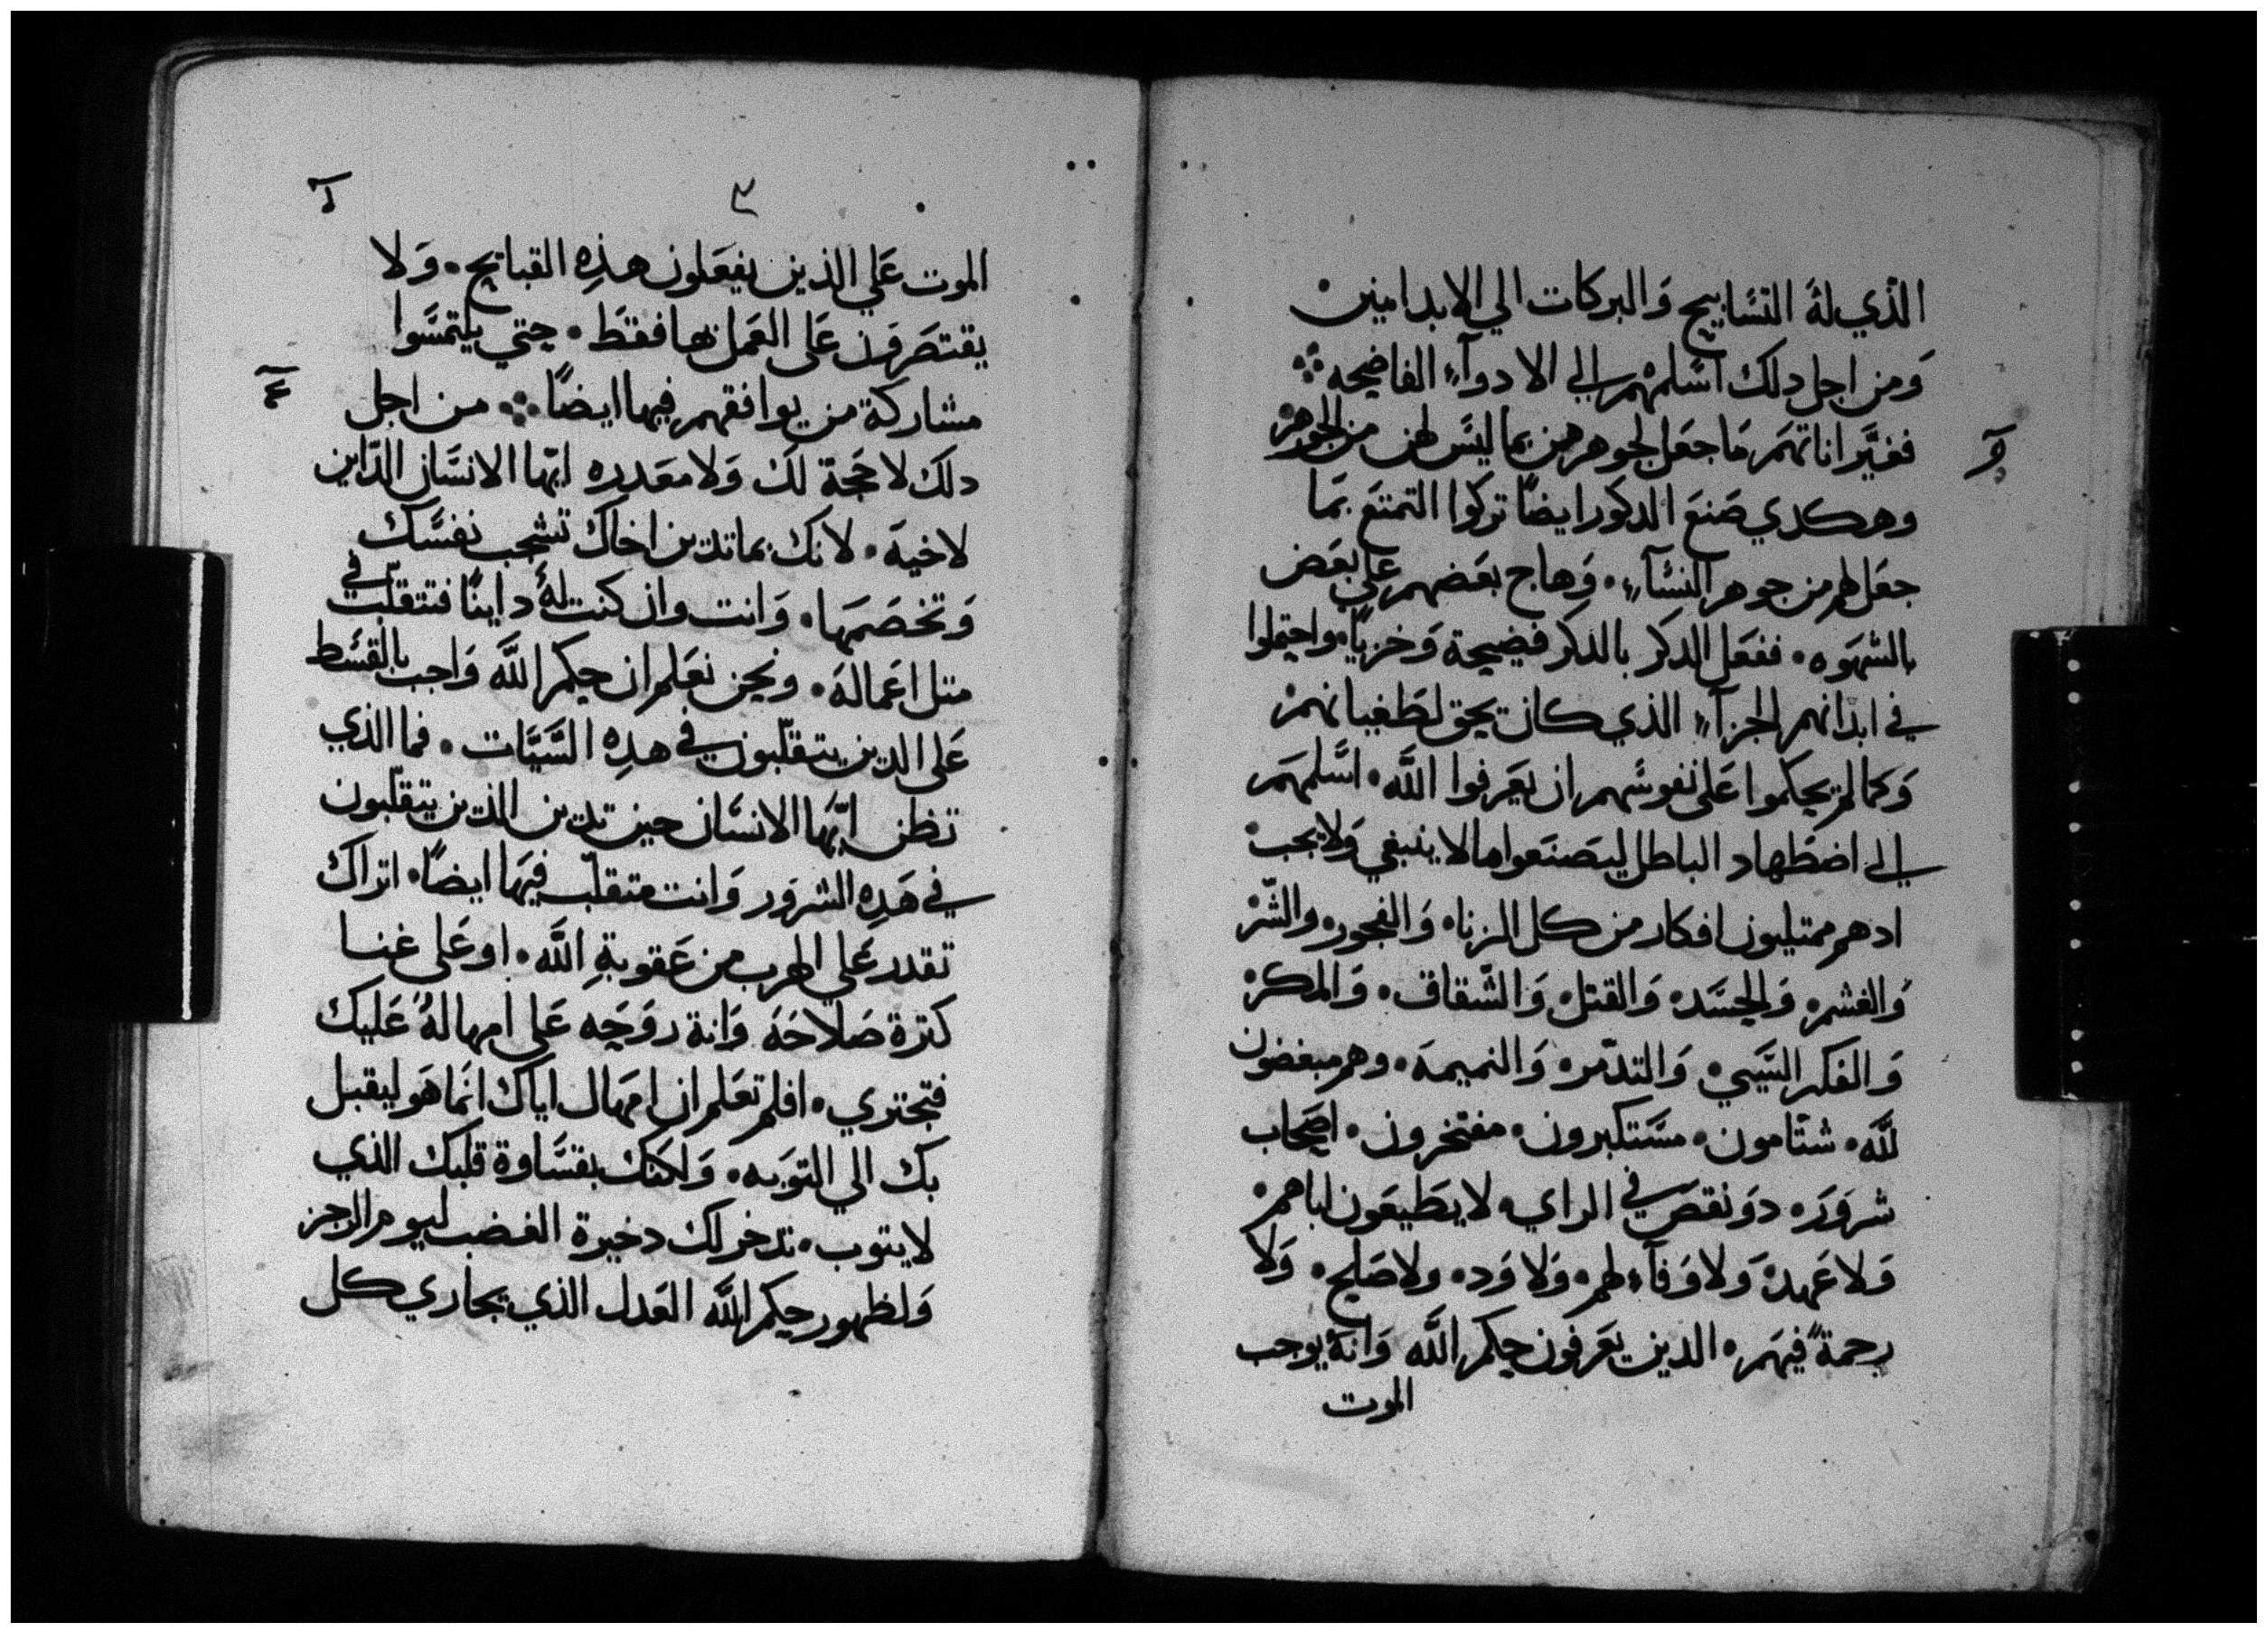 الذي لهَ التسَابيح وَالبركات الي الابد امين
وَمن اجل دلك اسَلمهم الي الادوآءِ الفاضحه
فغيَّر اناثهمَ مَا جعَل لجوهرهن بما ليسَ لهن من الجوهر
وهكدي صَنعَ الدكورَ ايضًا تركوا التمتعَ بمَا
جعَل لهم من جوهر النسَآءِ وَهاج بعَضهم علي بعَض
بالشهوَه ففعَل الدكر بالدكر فضيحة وَخزيًا واحتملوا
في ابدانهم الجزآءِ الذي كان يحق لطَغيانهم
وَكما لم يحكموا عَلي نفوسَهم ان يعَرفوا اللَّه اسَّلمهَم
الي اضطَهاد الباطل ليصَنعَوا ما لا ينبغي وَلا يجب
ادهم ممتليون افكار من كل الزنا وَالفجور والشّر
وَالغشم وَالحسَد وَالقتل وَالشّقاق وَالمكر
وَالفكر السَّيي وَالتدمّر وَالنميمة وهم مبغضون
للَّه شتّامون مسَّتكبرون مفتخرون اصَحاب
شرورَ دوَ نقصَ في الراي لا يطَيعَون اباهم
وَلا عَهدَ وَلا وَفآءِ لهم وَلا وَد ولا صَلح وَلا
رحمةً فيهَم الدين يعَرفون حكم اللَّه وَانهَ يوجب
الموت
٣
الموت عَلي الذين يفعَلون هذِه القبايح وَلا
يقتصَرَون عَلي العَمل بها فقطَ حتي يلتمسَّوا
مشاركة من يوافقهم فيها ايضًا من اجل
دلكَ لا حَجة لكَ وَلا معَدره ايّها الانسَان الدّاين
لاخيهَ لانك بما تدين اخاك تشجب نفسَك
وَتخصَمَها وَانت وان كنت لهَ داينًا فتتقلّب في
متل اعَمالهَ ونحن نعَلم ان حكم اللَّه وَاجب بالقسَط
عَلي الدين يتقلّبون في هدِه السَّيَّات فما الذي
تظن ايّهَا الانسَان حين تدين الذين يتقلّبون
في هَدِه الشرَور وَانت متقلّب فيهَا ايضًا اتراك
تقدر عَلي الهرب من عَقوبةِ اللَّه او عَلي غنا
كترة صَلاحَهَ وَاناة روَحَه عَلي امهالهُ عَليك
فتجتري افلم تعَلم ان امهَال اياك انمَا هوَ ليقبل
بك الي التوَبه وَلكنك بقسَاوة قلبك الذي
لا يتوب تدخر لك دخيرة الغضب ليوم الرجز
وَلظهور حكم اللَّه العَدل الذي يجاري كل